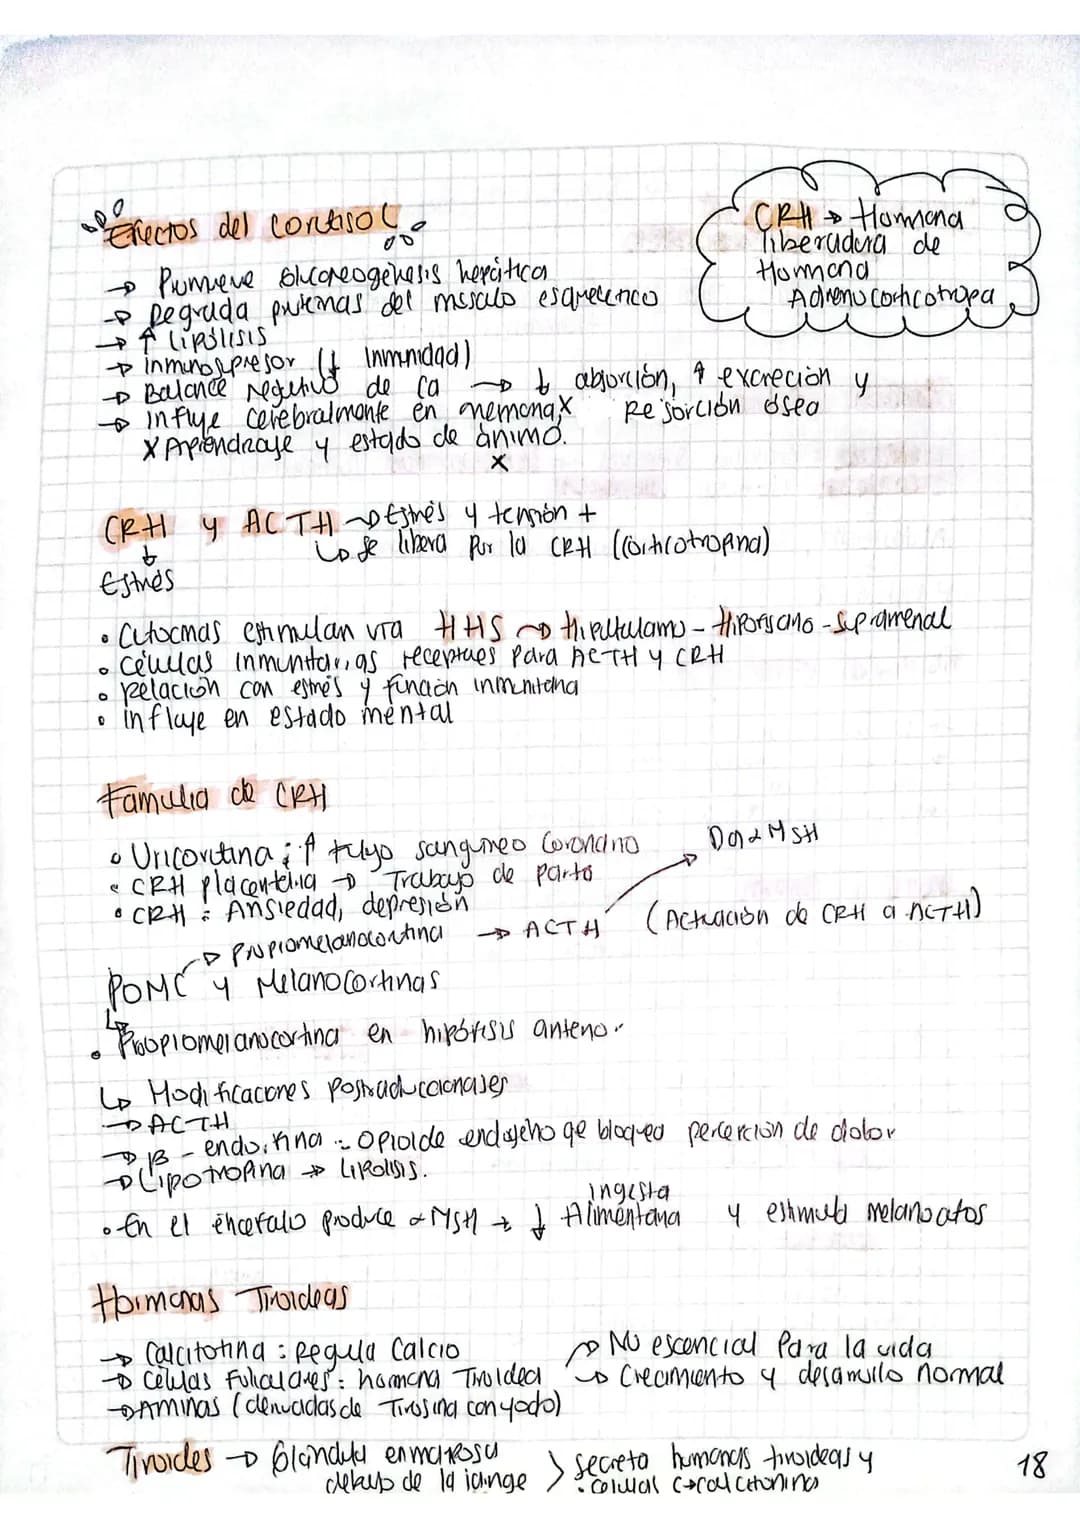 Efectos del cortisol
CRH → Hormona
liberadora de
Hormona
Adrenocorticotropa
→ Promueve Gluconeogénesis hepática
→ Degrada proteínas del músculo esquelético
→ ↑ Lipólisis
→ inmunosupresor (↓ Inmunidad)
→ Balance negativo de Ca → ↓ absorción, ↑ excreción y
Resorción ósea
→ influye cerebralmente en memoria,x
x Aprendizaje y estado de ánimo.
x
CRH y ACTH → Estrés y tensión +
↳ se libera por la CRH (corticotropina)
↓
Estrés
• Citocinas estimulan vía HHS → Hipotálamo - Hipofisiario - Suprarrenal
• células inmunitarias receptores para ACTH y CRH
• Relación con estrés y función inmunitaria
• influye en estado mental
Familia de CRH
• Uricortina: ↑ flujo sanguíneo Coronario
• CRH placentaria → Trabajo de parto
• CRH: Ansiedad, depresión
→ Propiomelanocortina → ACTH → Da α MSH (Actuación de CRH a ACTH)
POMC y Melanocortinas
• ↳ Proopiomelanocortina en hipófisis anterior
↳ Modificaciones postraduccionales
→ ACTH
→ β - endorfina: opioide endógeno qe bloquea percepción de dolor
→ Lipotropina → Lipolisis.
• En el encéfalo produce α MSH → ↓ ingesta Alimentaria y estimula melanocitos
Hormonas Tiroideas
→ Calcitonina: Regula Calcio
→ Células Foliculares: hormona Tiroidea
→ No escencial Para la vida
→ Crecimiento y desarrollo normal
→ Aminas (derivadas de Tirosina con yodo)
Tiroides → Glándula en mariposa
debajo de la laringe > secreta hormonas tiroideas y
• células C → calcitonina
18